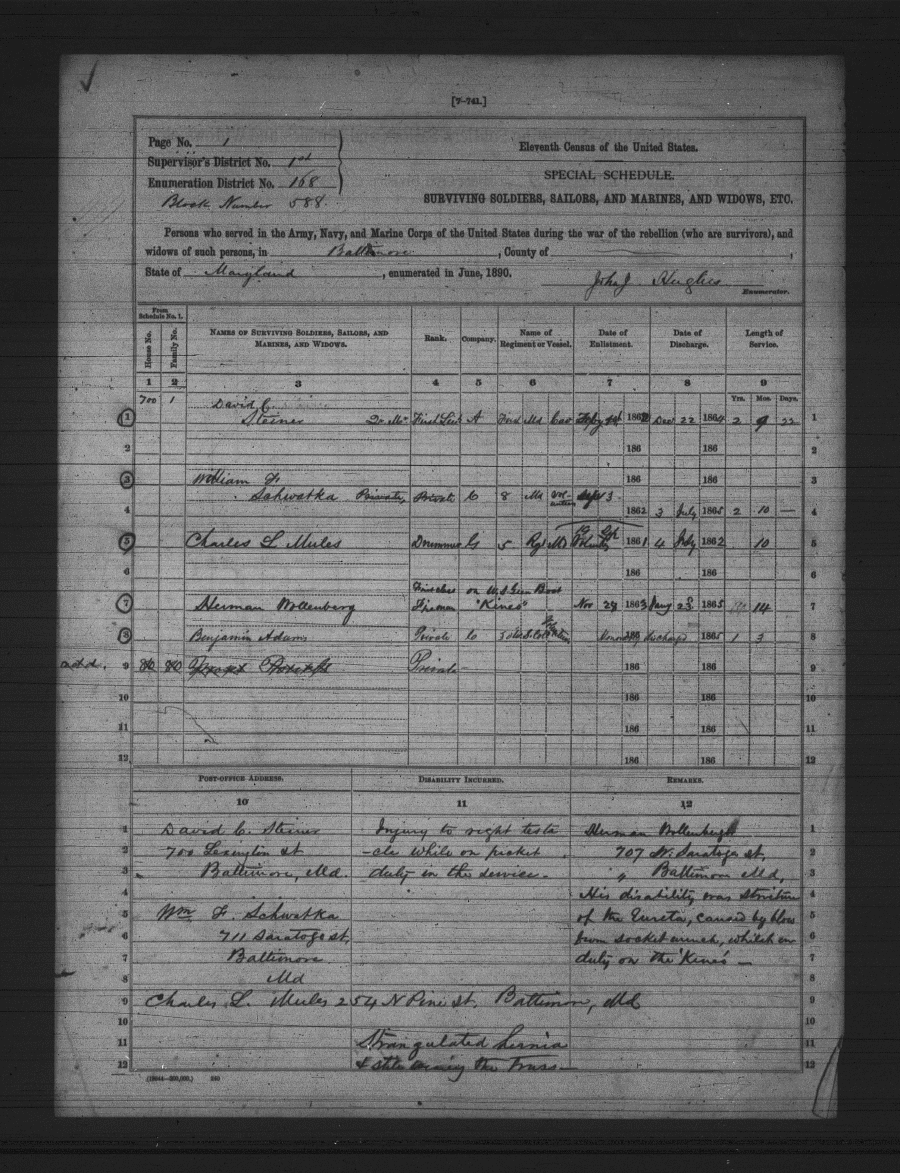 [7-741.]
Page No. 1
Supervisor's District No. 1st
Enumeration District No. 168
Block Number 588
Eleventh Census of the United States.
SPECIAL SCHEDULE.
SURVIVING SOLDIERS, SAILORS, AND MARINES, AND WIDOWS, ETC.
Persons who served in the Army, Navy, and Marine Corps of the United States during the war of the rebellion (who are survivors), and
widows of such persons, in Baltimore, County of ,
State of Maryland, enumerated in June, 1890.
John J Hughes
Enumerator.
From Schedule No. 1.
House No. Family No. NAMES OF SURVIVING SOLDIERS, SAILORS, AND MARINES, AND WIDOWS. Rank. Company. Name of Regiment or Vessel. Date of Enlistment. Date of Discharge. Length of Service.
1 2 3 4 5 6 7 8 9
Yrs. Mos. Days.
700 1 David C.
1 Steiner First Lieut A Md Cav 186 Dec 22 1864 2 9 22 1
2 186 186 2
3 William F 186 186 3
Schwatka Private, Private C 8 Md Vol- Sept 3
4 1862 3 July 1865 2 10 — 4
5 Charles L Mules Drummer G 5 Regt Md 1861 4 July 1862 10 5
6 186 186 6
First class on U.S. Gun Boat
7 Herman Wollenberg Fireman "Kineo" Nov 29 1863 Jany 23 1865 14 7
8 Benjamin Adams Private C 186 discharged 1865 1 3 8
9 Private 186 186 9
10 186 186 10
11 186 186 11
12 186 186 12
POST-OFFICE ADDRESS. DISABILITY INCURRED. REMARKS.
10 11 12
1 David C. Steiner Injury to right testi Herman Wollenbergh 1
2 700 Lexington st -cle while on picket 707 W. Saratoga st, 2
3 Baltimore, Md. duty in the service. " Baltimore Md, 3
4 His disability was Stricture 4
5 Wm F. Schwatka of the Eureta, caused by blow 5
6 711 Saratoga st, from socket wrench, whilst on 6
7 Baltimore duty on the 'Kineo' — 7
8 Md 8
9 Charles L. Mules 254 N Pine st. Baltimore, Md 9
10 10
11 Strangulated hernia 11
12 & still the Truss 12